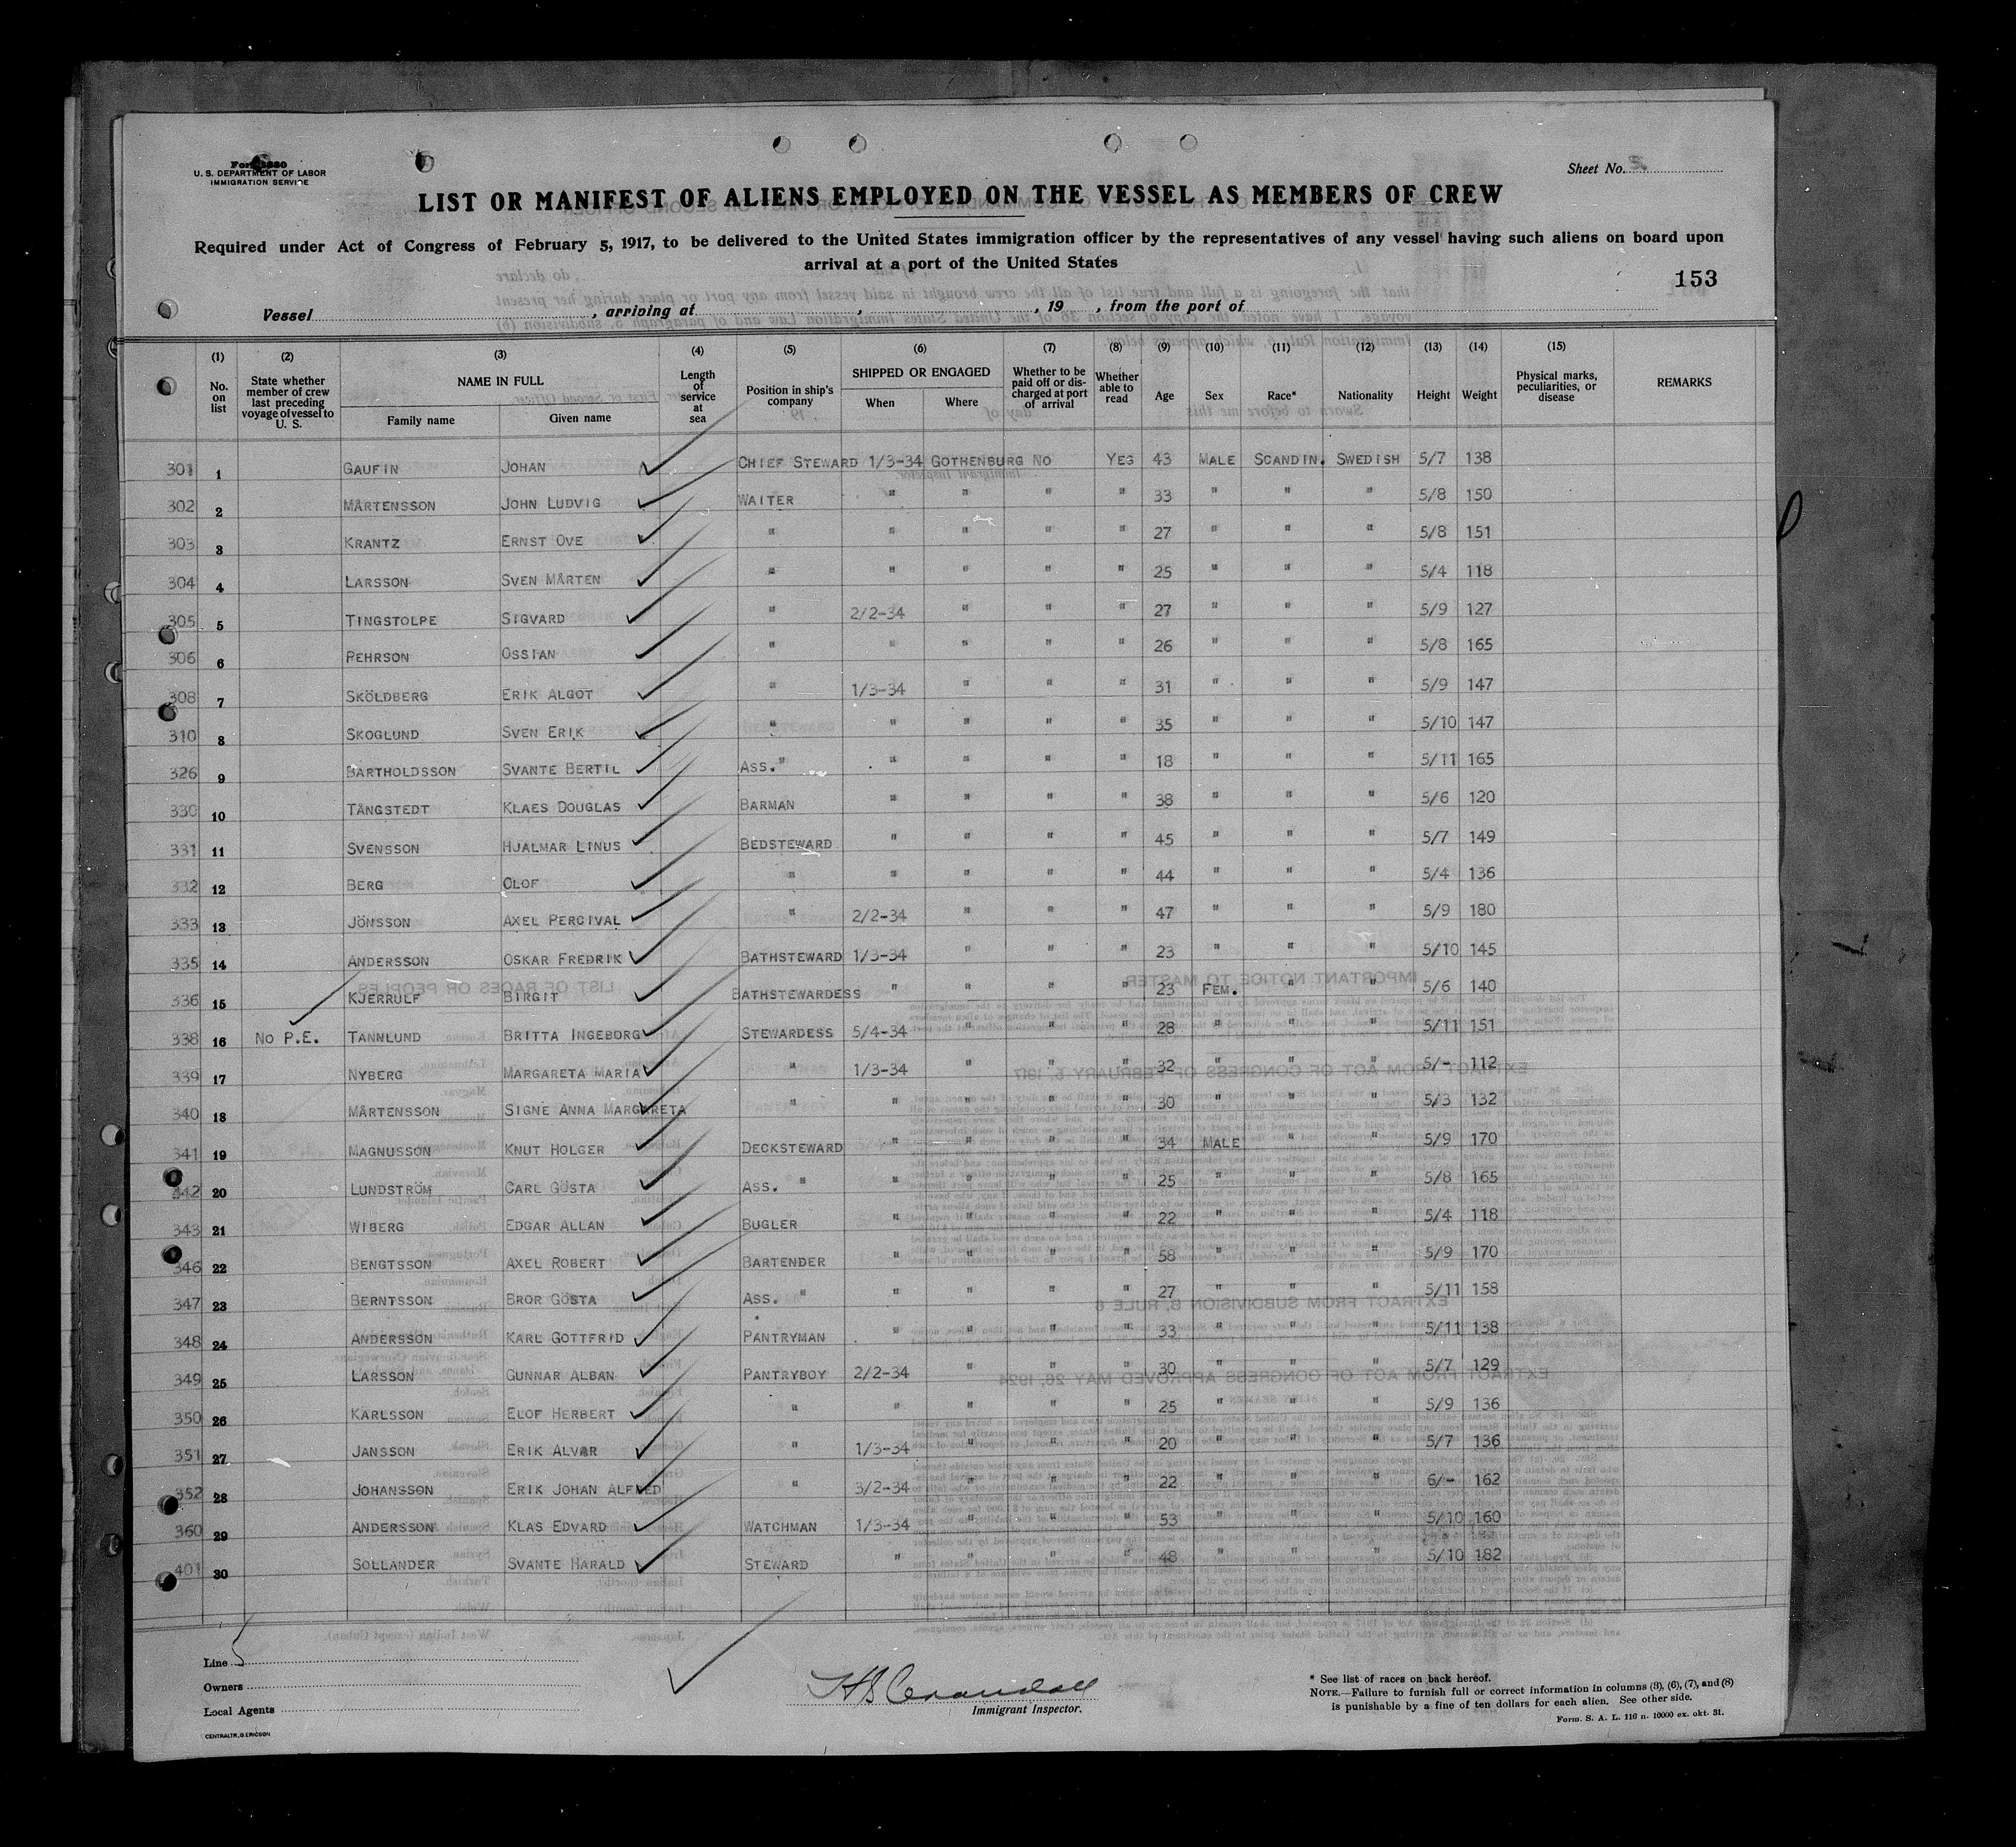 Form 680
U. S. DEPARTMENT OF LABOR
IMMIGRATION SERVICE
Sheet No. 5.
LIST OR MANIFEST OF ALIENS EMPLOYED ON THE VESSEL AS MEMBERS OF CREW
Required under Act of Congress of February 5, 1917, to be delivered to the United States immigration officer by the representatives of any vessel having such aliens on board upon
arrival at a port of the United States
153
Vessel , arriving at , , 19 , from the port of
(1) No. on list (2) State whether member of crew last preceding voyage of vessel to U. S. (3) NAME IN FULL Family name Given name (4) Length of service at sea (5) Position in ship's company (6) SHIPPED OR ENGAGED When Where (7) Whether to be paid off or discharged at port of arrival (8) Whether able to read (9) Age (10) Sex (11) Race* (12) Nationality (13) Height (14) Weight (15) Physical marks, peculiarities, or disease REMARKS
301 1 GAUFIN JOHAN CHIEF STEWARD 1/3-34 GOTHENBURG NO YES 43 MALE SCANDIN. SWEDISH 5/7 138
302 2 MÅRTENSSON JOHN LUDVIG WAITER " " " " 33 " " " 5/8 150
303 3 KRANTZ ERNST OVE " " " " " 27 " " " 5/8 151
304 4 LARSSON SVEN MÅRTEN " " " " " 25 " " " 5/4 118
305 5 TINGSTOLPE SIGVARD " 2/2-34 " " " 27 " " " 5/9 127
306 6 PEHRSON OSSIAN " " " " " 26 " " " 5/8 165
308 7 SKÖLDBERG ERIK ALGOT " 1/3-34 " " " 31 " " " 5/9 147
310 8 SKOGLUND SVEN ERIK " " " " " 35 " " " 5/10 147
326 9 BARTHOLDSSON SVANTE BERTIL ASS. " " " " " 18 " " " 5/11 165
330 10 TÅNGSTEDT KLAES DOUGLAS BARMAN " " " " 38 " " " 5/6 120
331 11 SVENSSON HJALMAR LINUS BEDSTEWARD " " " " 45 " " " 5/7 149
332 12 BERG OLOF " " " " " 44 " " " 5/4 136
333 13 JÖNSSON AXEL PERCIVAL " 2/2-34 " " " 47 " " " 5/9 180
335 14 ANDERSSON OSKAR FREDRIK BATHSTEWARD 1/3-34 " " " 23 " " " 5/10 145
336 15 KJERRULF BIRGIT BATHSTEWARDESS " " " " 23 FEM. " " 5/6 140
338 16 NO P.E. TANNLUND BRITTA INGEBORG STEWARDESS 5/4-34 " " " 28 " " " 5/11 151
339 17 NYBERG MARGARETA MARIA " 1/3-34 " " " 32 " " " 5/- 112
340 18 MÅRTENSSON SIGNE ANNA MARGARETA " " " " " 30 " " " 5/3 132
341 19 MAGNUSSON KNUT HOLGER DECKSTEWARD " " " " 34 MALE " " 5/9 170
342 20 LUNDSTRÖM CARL GÖSTA ASS. " " " " " 25 " " " 5/8 165
343 21 WIBERG EDGAR ALLAN BUGLER " " " " 22 " " " 5/4 118
346 22 BENGTSSON AXEL ROBERT BARTENDER " " " " 58 " " " 5/9 170
347 23 BERNTSSON BROR GÖSTA ASS. " " " " " 27 " " " 5/11 158
348 24 ANDERSSON KARL GOTTFRID PANTRYMAN " " " " 33 " " " 5/11 138
349 25 LARSSON GUNNAR ALBAN PANTRYBOY 2/2-34 " " " 30 " " " 5/7 129
350 26 KARLSSON ELOF HERBERT " " " " " 25 " " " 5/9 136
351 27 JANSSON ERIK ALVAR " 1/3-34 " " " 20 " " " 5/7 136
352 28 JOHANSSON ERIK JOHAN ALFRED " 3/2-34 " " " 22 " " " 6/- 162
360 29 ANDERSSON KLAS EDVARD WATCHMAN 1/3-34 " " " 53 " " " 5/10 160
401 30 SOLLANDER SVANTE HARALD STEWARD " " " " 48 " " " 5/10 182
Line
Owners
Local Agents
CENTRALTR, G. ERICSON
HS Crandall
Immigrant Inspector.
* See list of races on back hereof.
NOTE.—Failure to furnish full or correct information in columns (3), (6), (7), and (8)
is punishable by a fine of ten dollars for each alien. See other side.
Form. S. A. L. 116 n. 10000 ex. okt. 31.